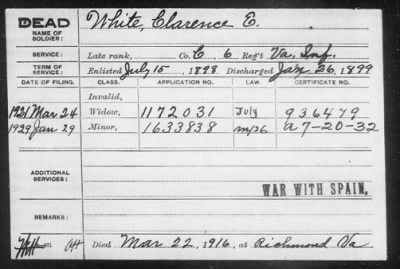 DEAD
NAME OF SOLDIER: White, Clarence E.
SERVICE: Late rank, Co. C, 6 Reg't Va. Inf.
TERM OF SERVICE: Enlisted July 15, 1898 Discharged Jan 26, 1899
DATE OF FILING. CLASS. APPLICATION NO. LAW. CERTIFICATE NO.
Invalid,
1921 Mar 24 Widow, 1172031 July 936479
1929 Jan 29 Minor, 1633838 a 7-20-32
ADDITIONAL SERVICES:
WAR WITH SPAIN.
REMARKS:
Died Mar 22, 1916, at Richmond Va